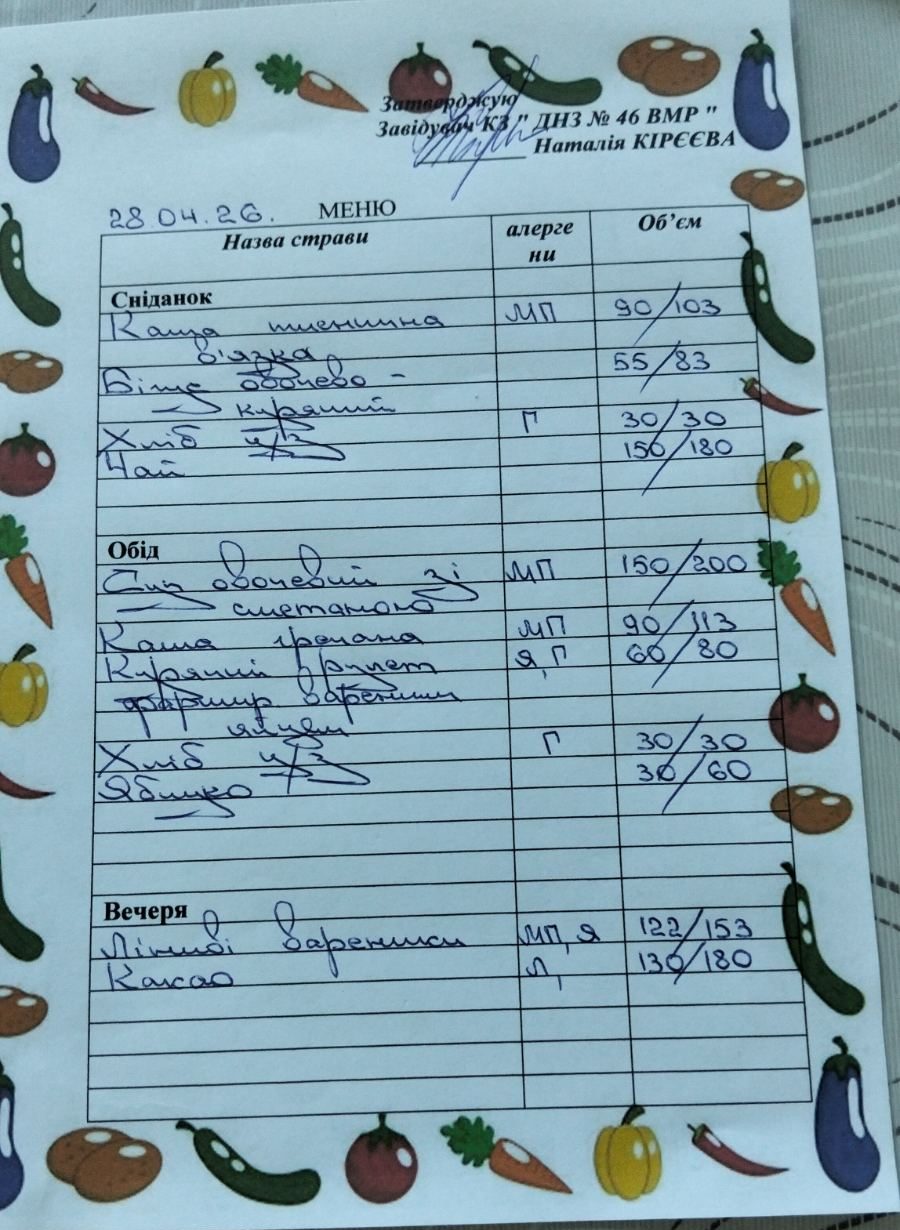 Затверджую
Завідувач КЗ " ДНЗ № 46 ВМР "
Наталія КІРЄЄВА
28.04.26. МЕНЮ
Назва страви алерге ни Об’єм
Сніданок
Каша пшенична МП 90/103
в'язка
Біточ овочево - 55/83
курячий
Хліб ц/з Г 30/30
Чай 150/180
Обід
Суп овочевий зі МП 150/200
сметаною
Каша гречана МП 90/113
Курячий рулет Я, Г 60/80
фаршир вареним
яйцем
Хліб ц/з Г 30/30
Яблуко 30/60
Вечеря
Ліниві вареники МП, Я 122/153
Какао Л, 130/180